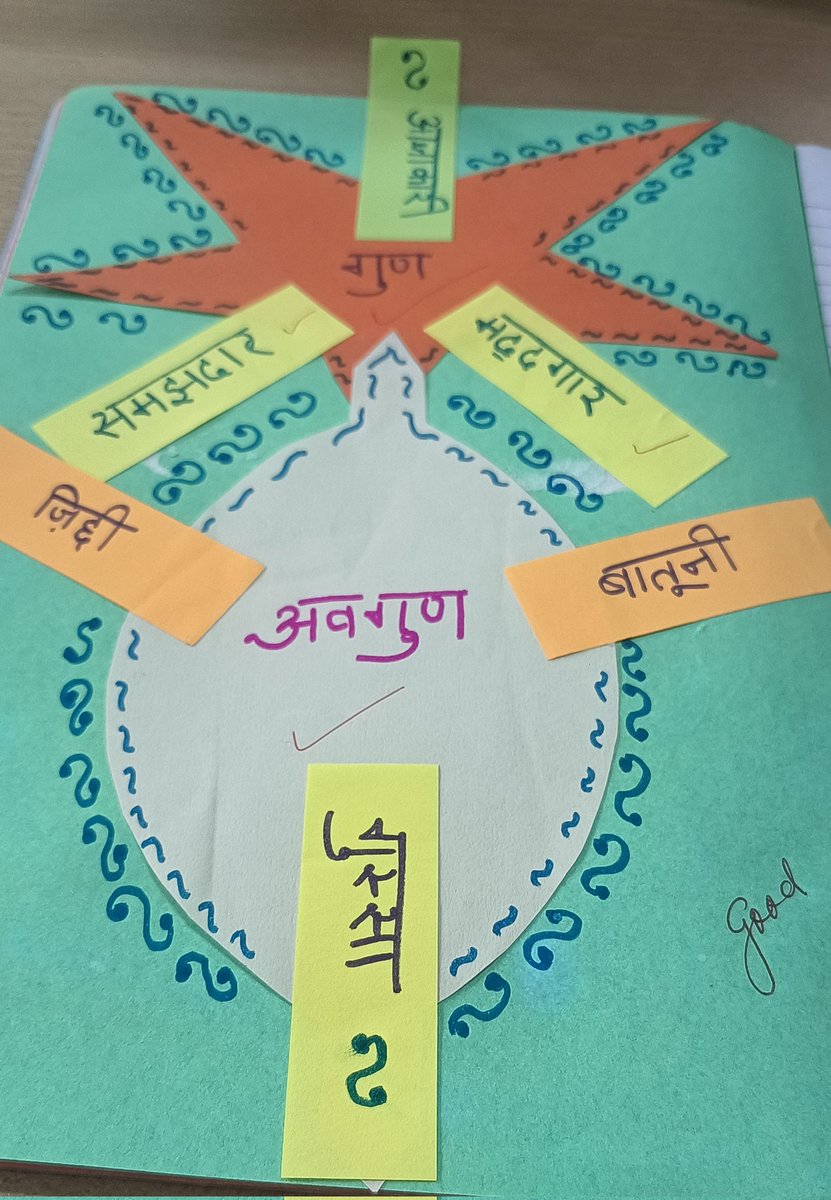 आज्ञाकारी
गुण
समझदार
मददगार
ज़िद्दी
बातूनी
अवगुण
गुस्सा
Good